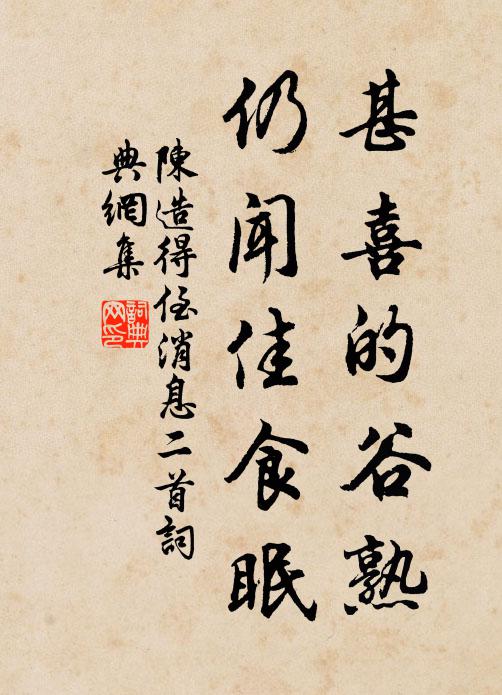 甚喜的谷熟
仍闻佳食眠
陳造得侄消息二首詞
典網集
詞典
网印